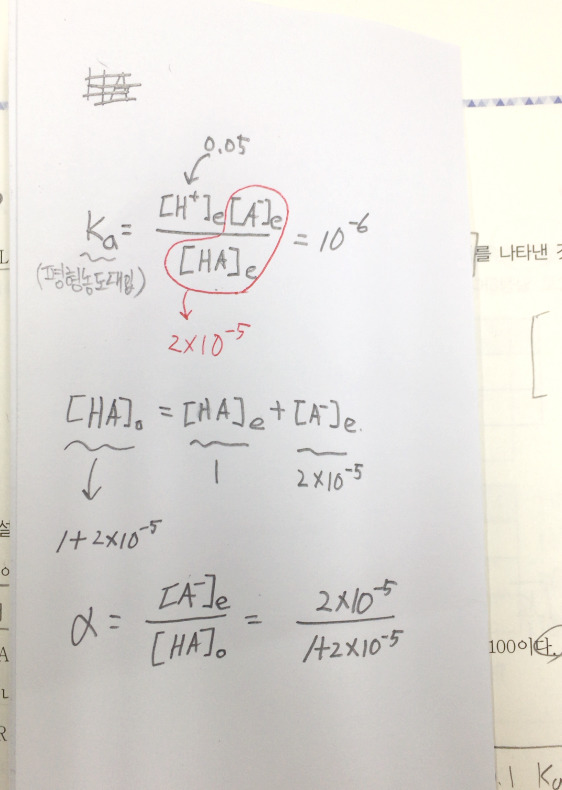 0.05
Ka = [H⁺]e[A⁻]e / [HA]e = 10⁻⁶
(평형농도대입)
2×10⁻⁵
[HA]₀ = [HA]e + [A⁻]e.
1
2×10⁻⁵
1+2×10⁻⁵
α = [A⁻]e / [HA]₀ = 2×10⁻⁵ / 1+2×10⁻⁵
를 나타낸
100이다.
.1 Ka
설
A
R